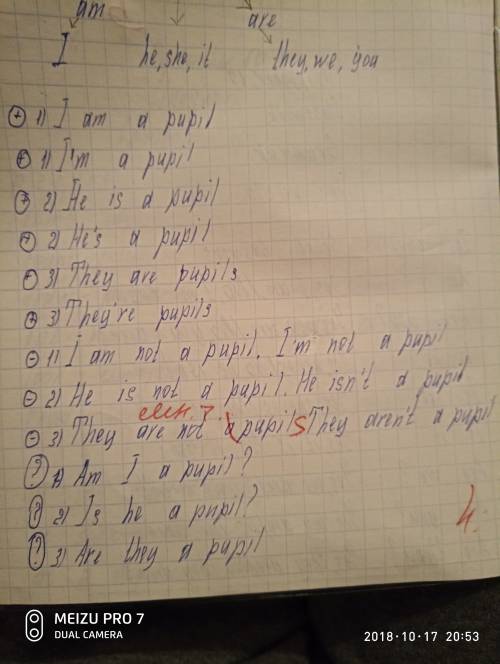 am are
I he, she, it they, we, you
+ 1) I am a pupil
+ 1) I'm a pupil
+ 2) He is a pupil
+ 2) He's a pupil
+ 3) They are pupils
+ 3) They're pupils
- 1) I am not a pupil. I'm not a pupil
- 2) He is not a pupil. He isn't a pupil
- 3) They are not a pupils They aren't a pupil
? 1) Am I a pupil?
? 2) Is he a pupil?
4
? 3) Are they a pupil
MEIZU PRO 7
DUAL CAMERA
2018-10-17 20:53